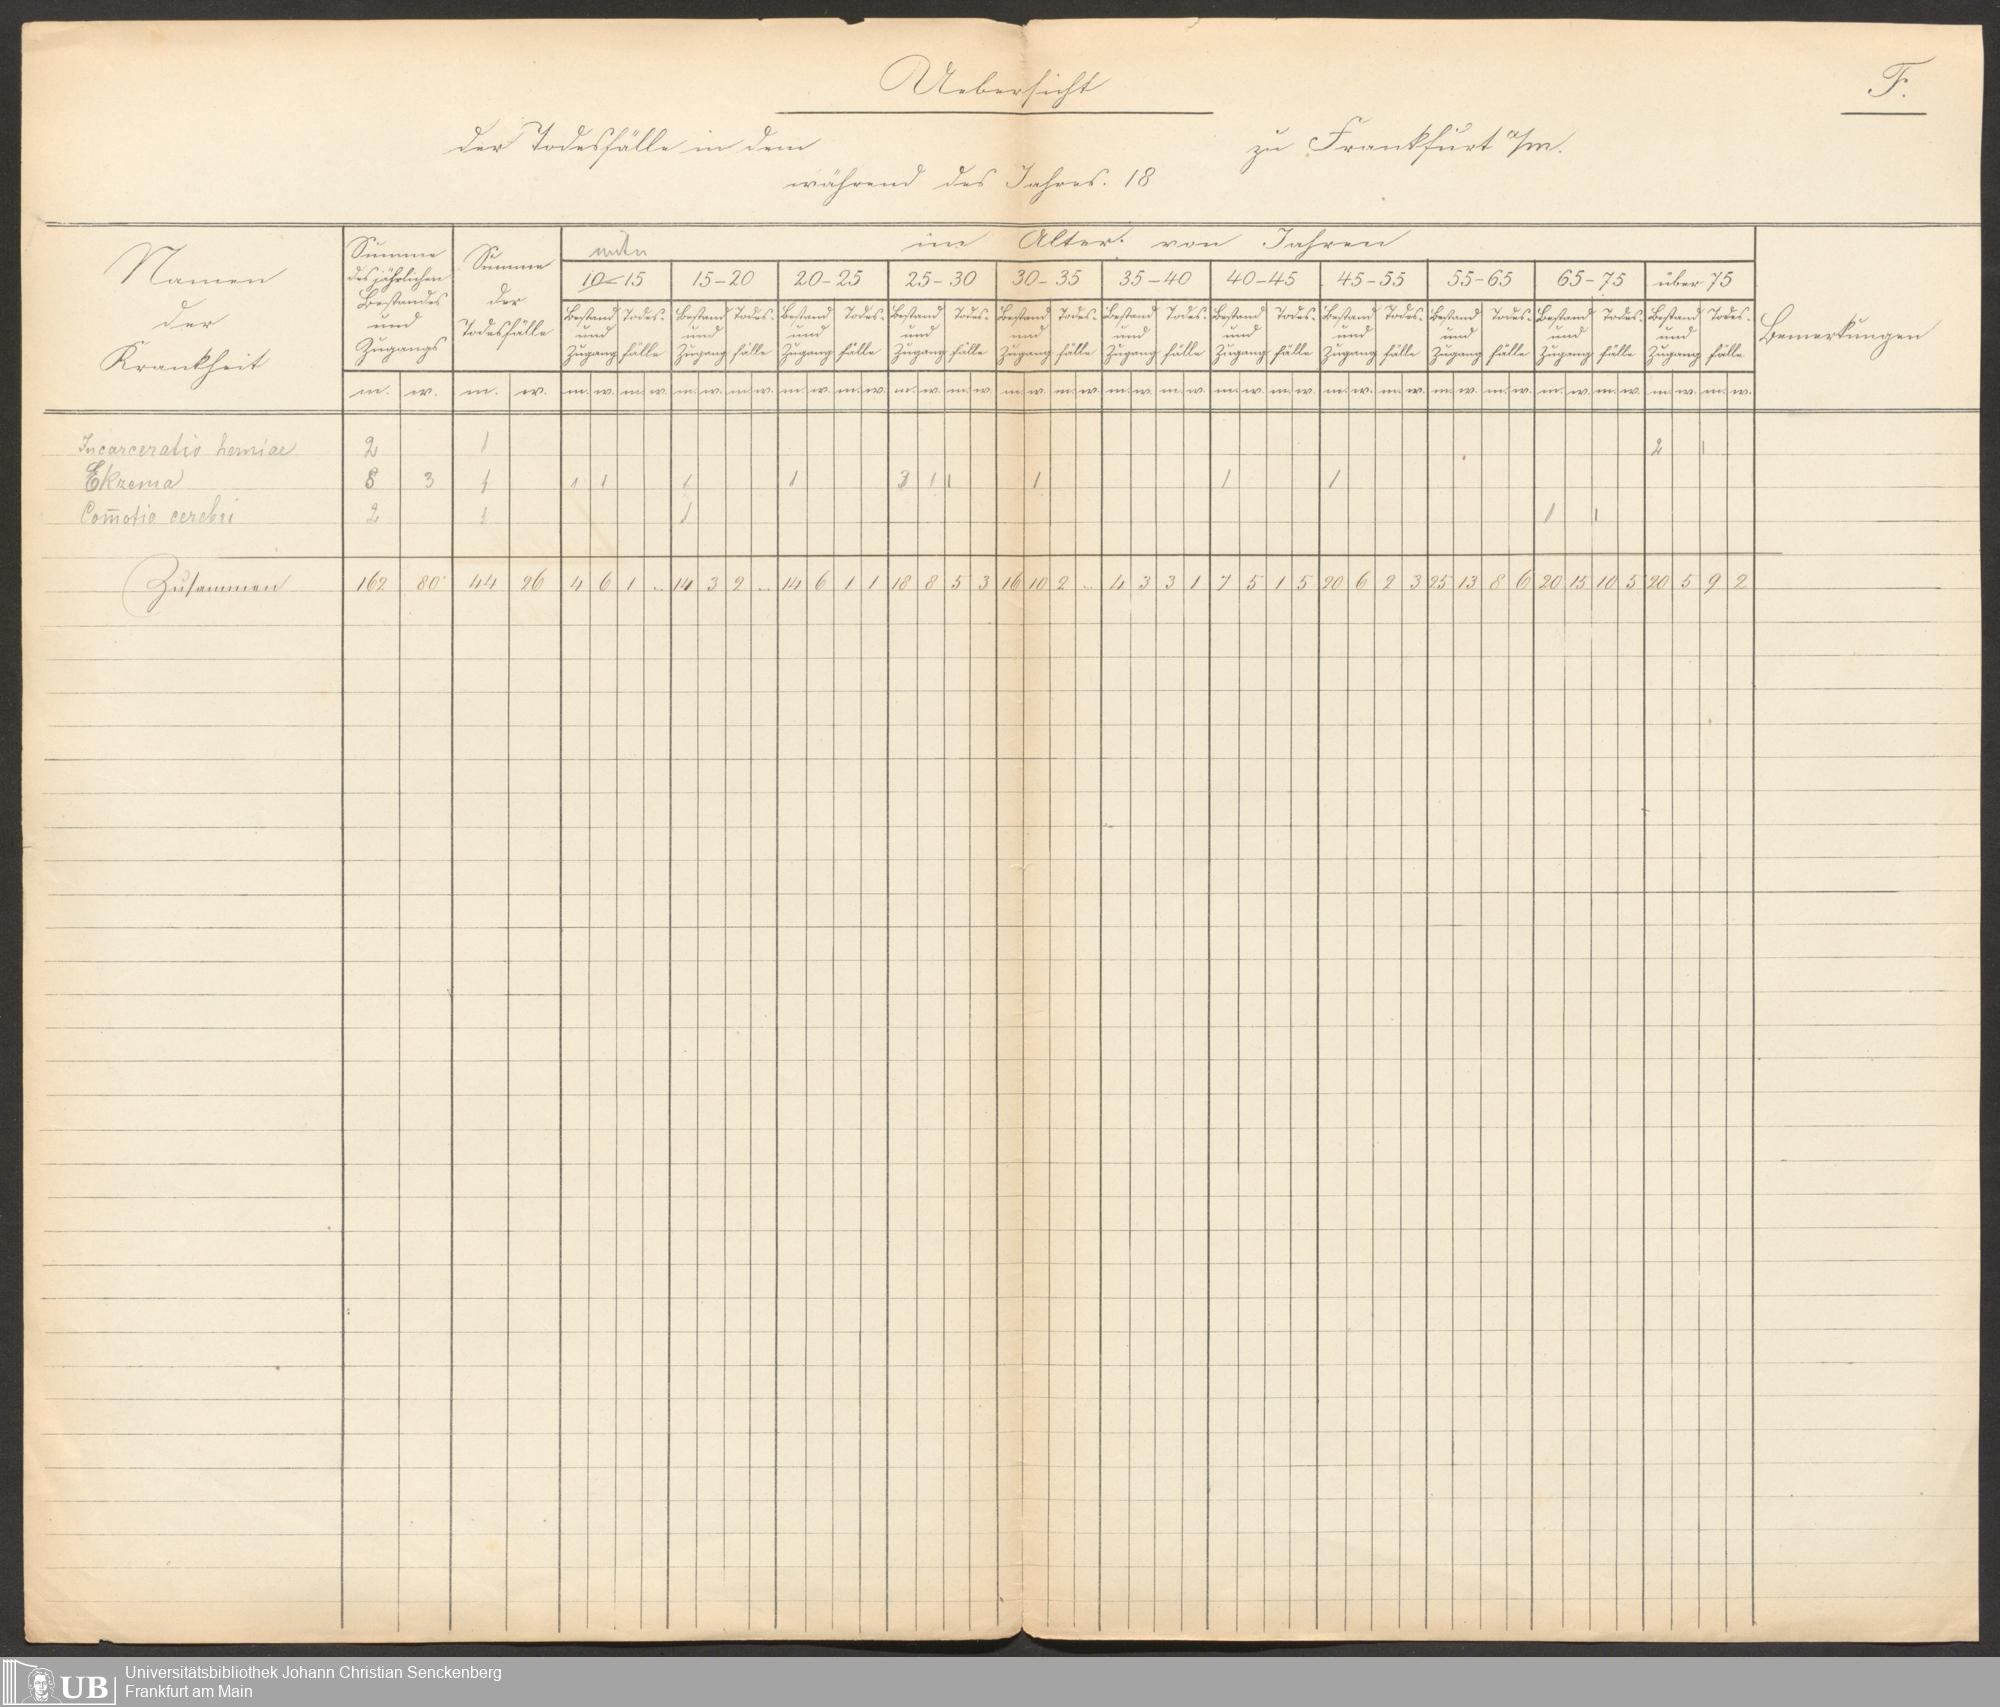 Uebersicht
F.
der Todesfälle in dem zu Frankfurt a/m.
während des Jahres. 18
Namen der Krankheit
Summe des jährlichen Bestandes und Zugangs
Summe der Todesfälle
unter
im Alter von Jahren
Bemerkungen
10-15 15-20 20-25 25-30 30-35 35-40 40-45 45-55 55-65 65-75 über 75
Bestand und Zugang Todes-fälle Bestand und Zugang Todes-fälle Bestand und Zugang Todes-fälle Bestand und Zugang Todes-fälle Bestand und Zugang Todes-fälle Bestand und Zugang Todes-fälle Bestand und Zugang Todes-fälle Bestand und Zugang Todes-fälle Bestand und Zugang Todes-fälle Bestand und Zugang Todes-fälle Bestand und Zugang Todes-fälle
m. w. m. w. m. w. m. w. m. w. m. w. m. w. m. w. m. w. m. w. m. w. m. w. m. w. m. w. m. w. m. w. m. w. m. w. m. w. m. w. m. w. m. w. m. w. m. w.
Incarceratio herniae 2 1 2 1
Ekzema 8 3 1 1 1 1 1 3 1 1 1 1 1
Com̄otio cerebri 2 1 1 1 1
Zusammen 162 80 44 26 4 6 1 .. 14 3 2 .. 14 6 1 1 18 8 5 3 16 10 2 .. 4 3 3 1 7 5 1 5 20 6 2 3 25 13 8 6 20 15 10 5 20 5 9 2
UB
Universitätsbibliothek Johann Christian Senckenberg
Frankfurt am Main